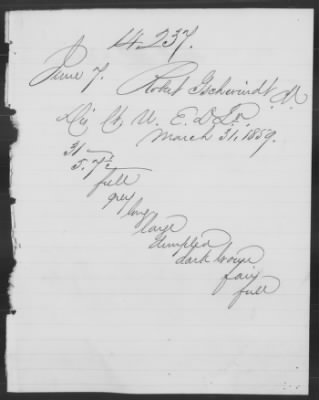 14.237.
June 7. Robert Gschwindt
Ct. U. E. D. La.
March 31, 1859.
31
5.7½
full
grey
long
large
dimpled
dark brown
fair
full